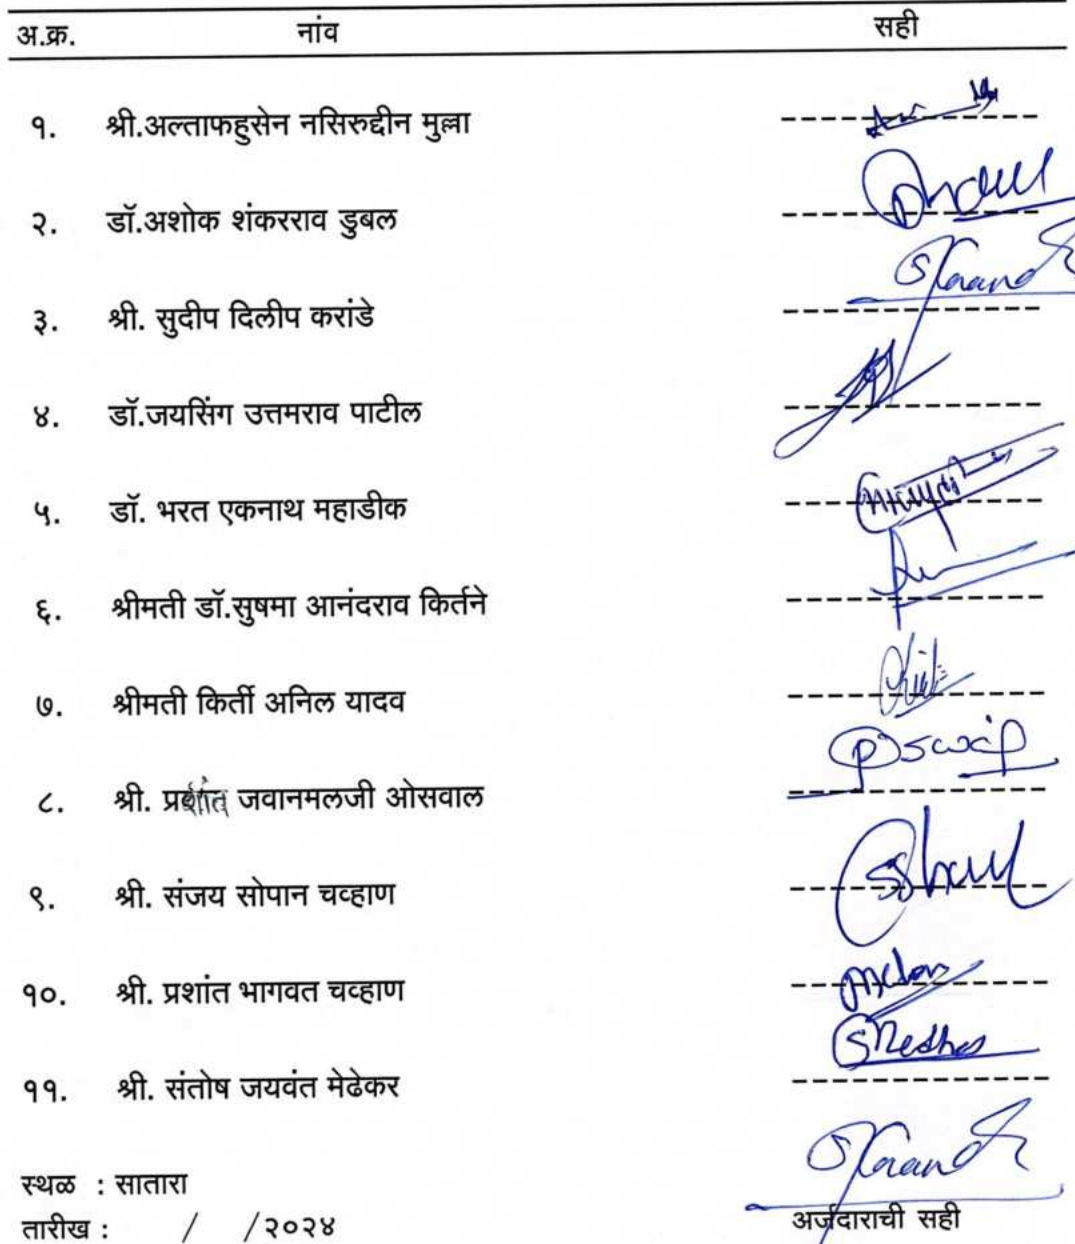 अ.क्र. नांव सही
१. श्री.अल्ताफहुसेन नसिरुद्दीन मुल्ला
२. डॉ.अशोक शंकरराव डुबल
३. श्री. सुदीप दिलीप करांडे
४. डॉ.जयसिंग उत्तमराव पाटील
५. डॉ. भरत एकनाथ महाडीक
६. श्रीमती डॉ.सुषमा आनंदराव किर्तने
७. श्रीमती किर्ती अनिल यादव
८. श्री. प्रशांत जवानमलजी ओसवाल
९. श्री. संजय सोपान चव्हाण
१०. श्री. प्रशांत भागवत चव्हाण
११. श्री. संतोष जयवंत मेढेकर
स्थळ : सातारा
तारीख : / /२०२४ अर्जदाराची सही